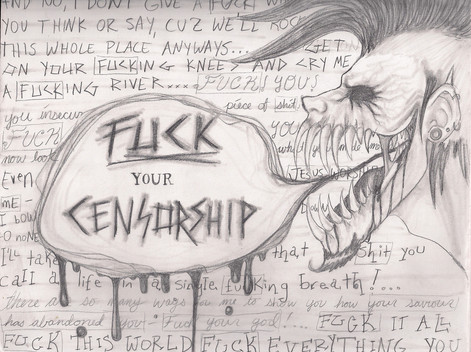 AND NO, I DON'T GIVE A FUCK
YOU THINK OR SAY, CUZ WE'LL ROCK
THIS WHOLE PLACE ANYWAYS... GET
ON YOUR FUCKING KNEES AND CRY ME
A FUCKING RIVER.... FUCK YOU!
you insecure piece of shit
FUCK YOU
now look
Even JESUS WORSHIP
me -
FUCK
YOUR
CENSORSHIP
I bow
to none
I'll take that shit you
call a life in a single fucking breath!...
there are so many ways for me to show you how your saviour
has abandoned you - Fuck your god.... FUCK IT ALL
FUCK THIS WORLD FUCK EVERYTHING YOU